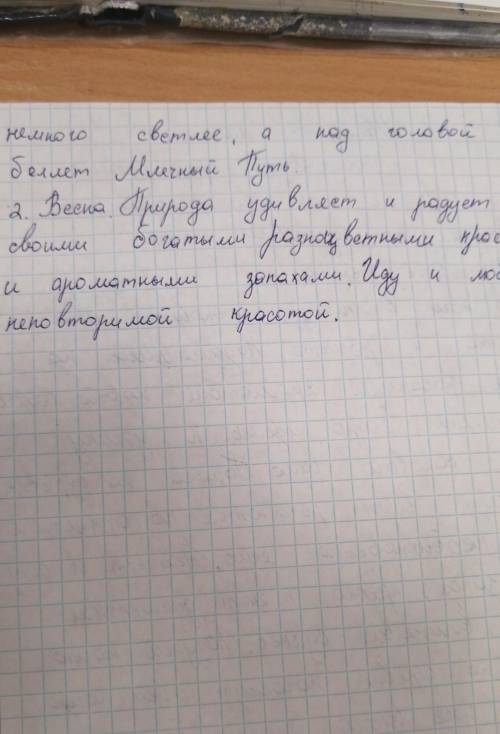 немного светлее, а над головой
белеет Млечный Путь.
2. Весна. Природа удивляет и радует
своими богатыми разноцветными крас
и ароматными запахами. Иду и лю
неповторимой красотой.